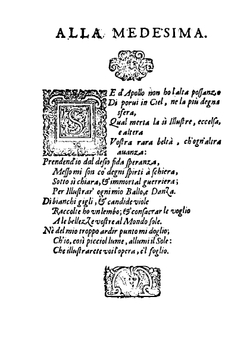 ALLA MEDESIMA.
SE d'Apollo non ho l'alta possanza
Di porui in Ciel, ne la più degna
sfera,
Qual merta la sì Illustre, eccelsa,
e altera
Vostra rara beltà, ch'ogn'altra
auanza:
Prendendo dal desso fida speranza,
Messo mi son cò degni spirti à schiera,
Sotto sì chiara, & immortal guerriera;
Per Illustrar' ogni mio Ballo, e Danza.
Di bianchi gigli, & candide viole
Raccolte ho vn lembo; & consacrar le voglio
A le bellezze vostre al Mondo sole.
Nè del mio troppo ardir punto mi doglio;
Ch'io, così picciol lume, allumi il Sole:
Che illustrarete voi l'opera, e'l foglio.